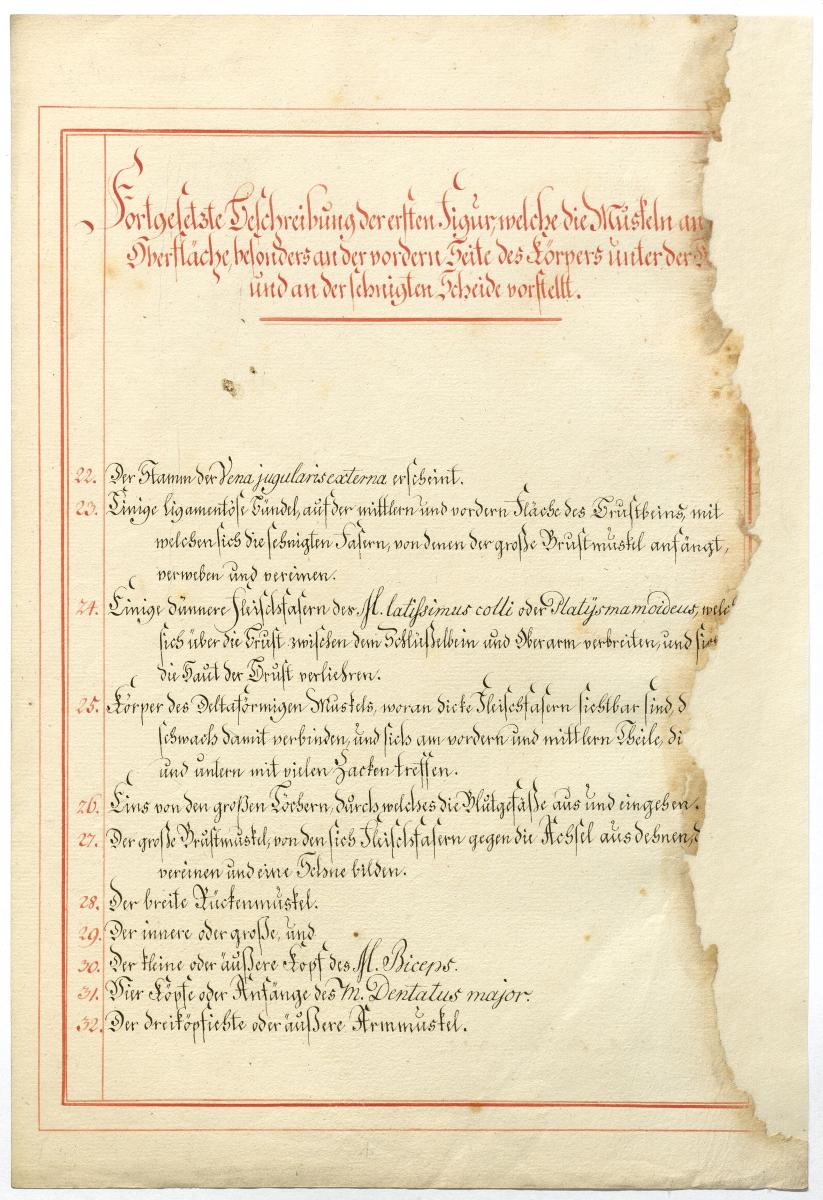 Fortgesetzte Beschreibung der ersten Figur, welche die Muskeln an
Oberfläche, besonders an der vordern Seite des Körpers unter der
und an der sehnigten Scheide vorstellt.
22. Der Stamm der Vena jugularis externa erscheint.
23. Einige ligamentöse Bündel, auf der mittlern und vordern Fläche des Brustbeins, mit
welchen sich die sehnigten Fasern, von denen der große Brustmuskel anfängt,
verweben und vereinen.
24. Einige dünnere Fleischfasern des M. latissimus colli oder Platÿsmamoideus, welc
sich über die Brust zwischen dem Schlüßelbein und Oberarm verbreiten, und sich
die Haut der Brust verliehren.
25. Körper des Deltaförmigen Muskels, woran dicke Fleischfasern sichtbar sind, d
schwach damit verbinden, und sich am vordern und mittlern Theile, di
und untern mit vielen Zacken treffen.
26. Eins von den großen Löchern, durch welches die Blutgefäße aus und eingehen.
27. Der große Brustmuskel, von den sich Fleischfasern gegen die Achsel ausdehnen,
vereinen und eine Sehne bilden.
28. Der breite Rückenmuskel.
29. Der innere oder große, und
30. Der kleine oder äußere Kopf des M. Biceps.
31. Vier Köpfe oder Anfänge des M. Dentatus major.
32. Der dreiköpfichte oder äußere Armmuskel.